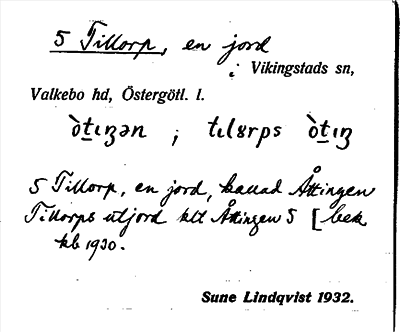 5 Tillorp, en jord
i Vikingstads sn,
Valkebo hd, Östergötl. l.
òt̲ɩʒən ; tɩlꞵrps òt̲ɩʒ
5 Tillorp, en jord, kallad Åttingen
Tillorps utjord kllt Åttingen 5 [bek
kb 1930.
Sune Lindqvist 1932.